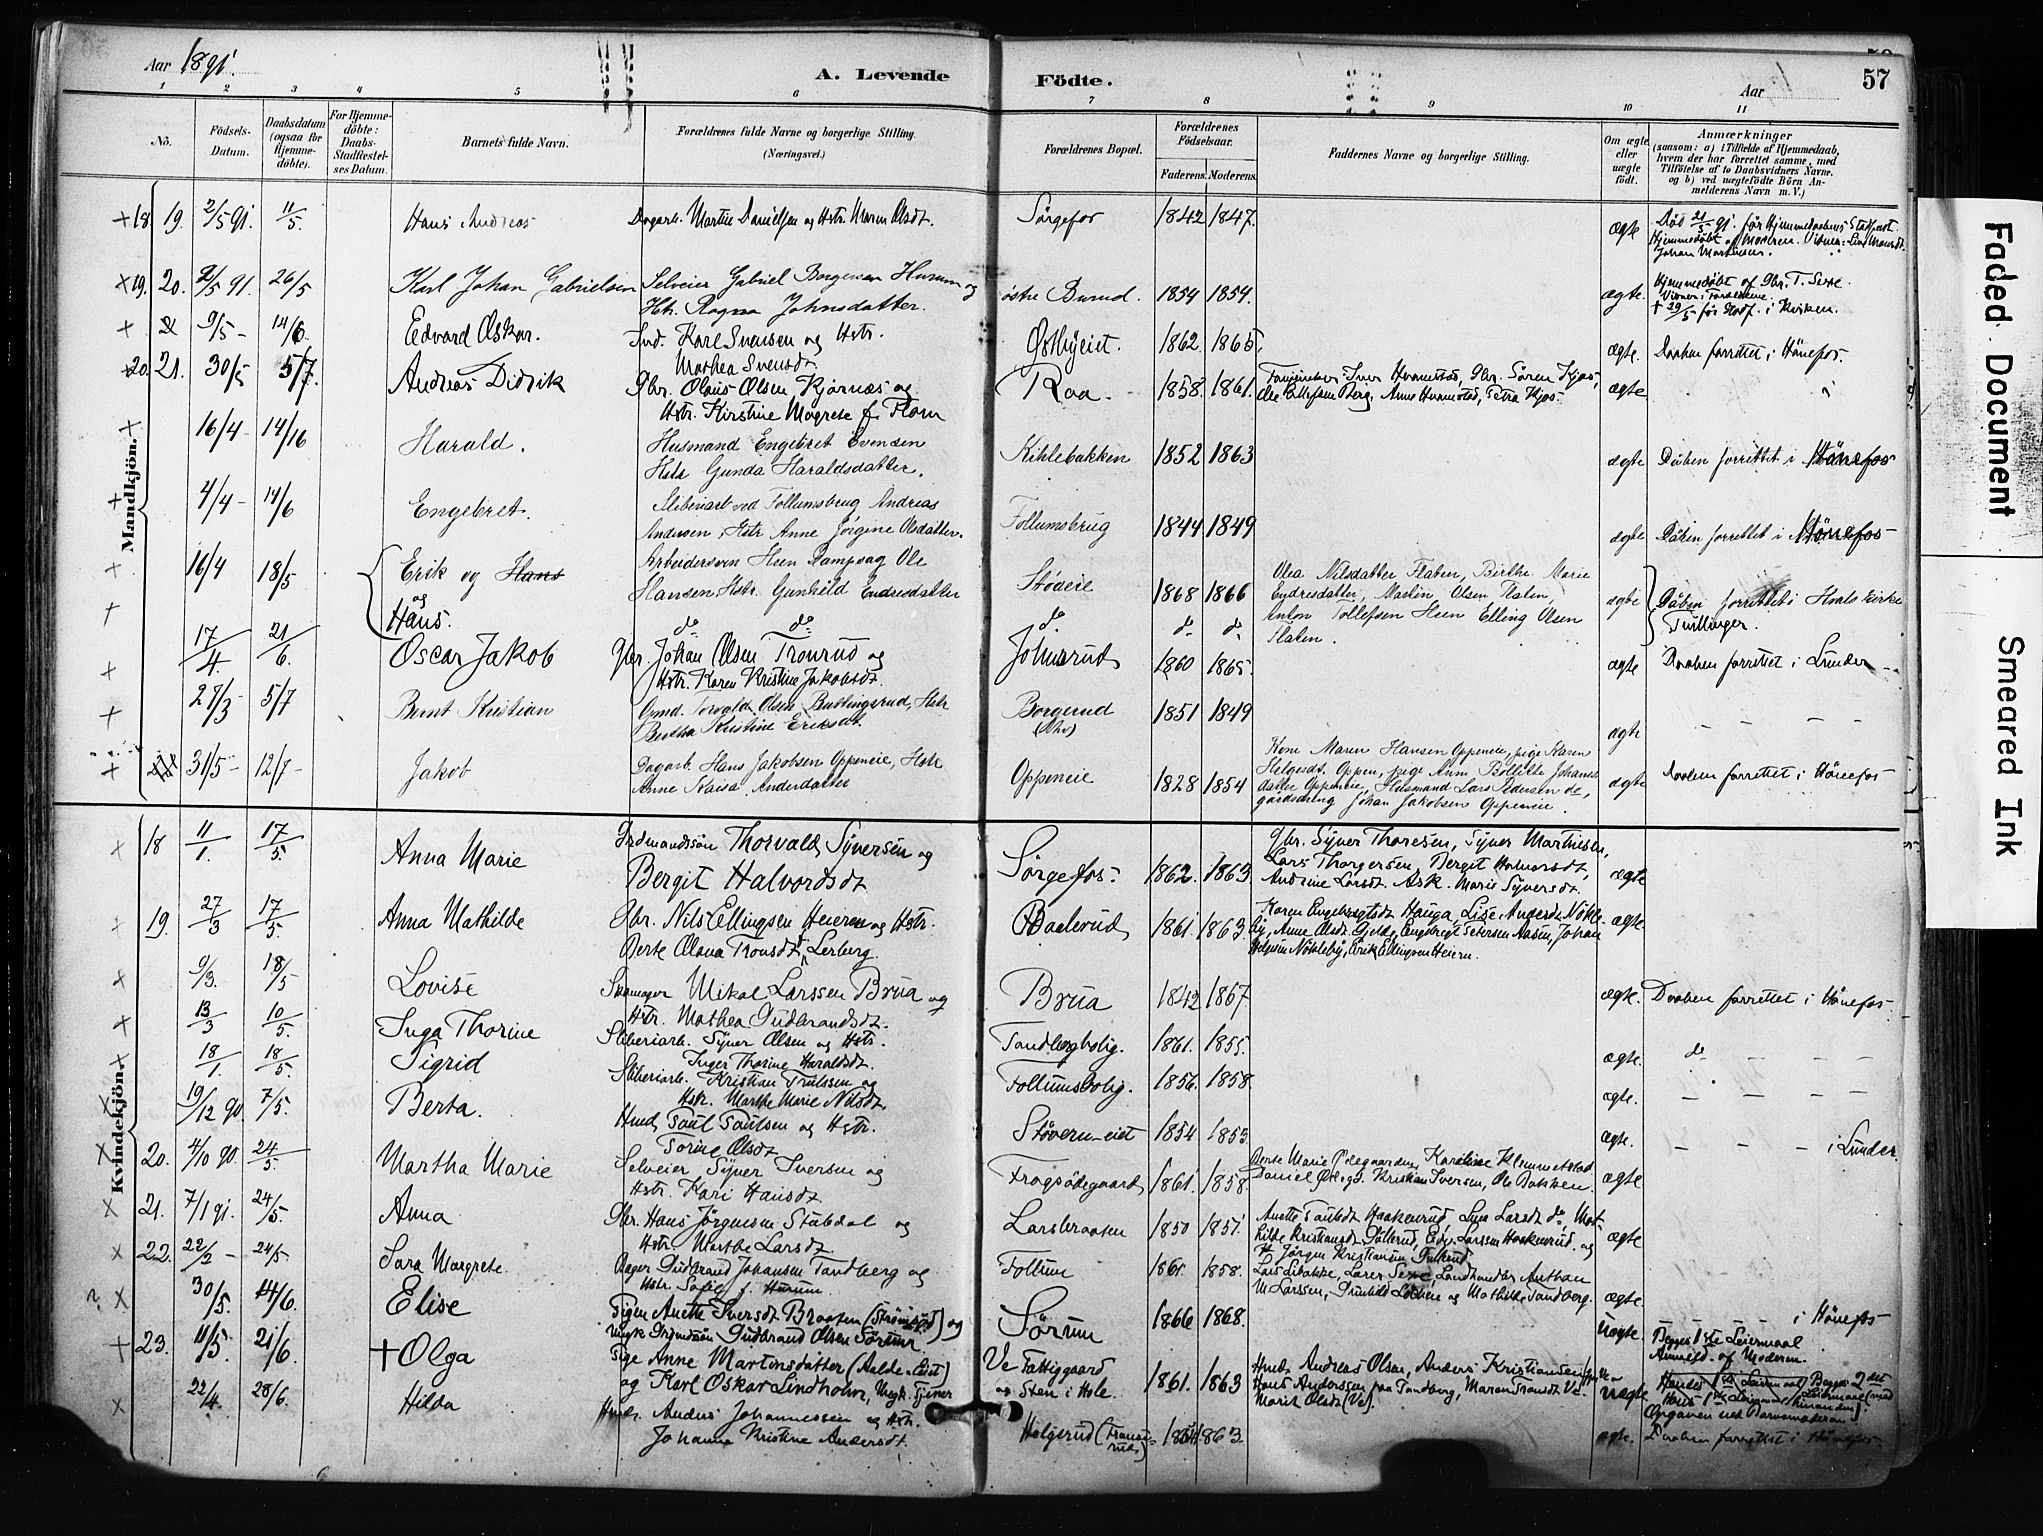 Aar 1891.
A. Levende Födte.
Aar
57
1 2 3 4 5 6 7 8 9 10 11
No.
Födsels-Datum.
Daabsdatum (ogsaa for Hjemmedöbte).
For Hjemmedöbte: Daabs-Stadfæstelses Datum.
Barnets fulde Navn.
Forældrenes fulde Navne og borgerlige Stilling. (Næringsvei.)
Forældrenes Bopæl.
Forældrenes Födselsaar.
Faderens. Moderens.
Faddernes Navne og borgerlige Stilling.
Om ægte eller uægte födt.
Anmærkninger (saasom: a) i Tilfælde af Hjemmedaab, hvem der har forrettet samme, med Tilföielse af to Daabsvidners Navne. og b) ved uægtefödte Börn Anmelderens Navn m. V.)
Mandkjön.
18. 19. 2/5 91. 11/5 Hans Andreas Dagarb. Martin Danielsen og Hstr. Maren Olsdt. Sørgefos 1842 1847. ægte Död 21/5 91. før Hjemmedaabens Stadfæst.
Hjemmedöbt af Moderen. Vidner: Lina Hansdt.
Johan Martinsen.
19. 20. 2/5 91. 26/5 Karl Johan Gabrielsen Selveier Gabriel Borgersen Hurum og
Hstr. Ragna Johnsdatter. østre Burud. 1854 1854. ægte. Hjemmedøbt af Gbr. T. Sexe.
Vidner: Forældrene.
† 29/5 før Stadf. i Kirken.
9/5 - 14/6. Edvard Oskar. Ind. Karl Svensen og Hstr.
Mathea Svensdt. Østbyeiet. 1862. 1865. ægte. Daaben forrettet i Hönefos.
20. 21. 30/5 5/7. Andreas Didrik Gbr. Olaus Olsen Kjørnæs og
Hstr. Kirstine Magrete f. Flom Raa - 1858. 1861. Iver Hvamstad, Gbr. Søren Kjøs,
Berg, Anne Hvamstad, Petra Kjøs. ægte
16/4 - 14/16 Harald. Husmand Engebret Evensen
Hstr Gunda Haraldsdatter. Kihlebakken 1852 1863 ægte Daaben forrettet i Hönefos
4/4 - 14/6 Engebret. Sliberiarb. ved Follumsbrug Andreas
Andersen, Hstr Anne Jörgine Olsdatter. Follumsbrug 1844 1849 ægte Daaben forrettet i Hönefos
16/4 18/5 Erik og Hans
og
Hans. Arbeidersven Heen Dampsag Ole
Hansen, Hstr. Gunhild Endresdatter
do do Støveie do 1868 1866 do do Olea Nilsdatter Flaten, Birthe Marie
Endresdatter, Martin Olsen Flaten,
Anton Tollefsen Heen Elling Olsen
Flaten. ægte Daaben forrettet i Hvals Kirke
Tvillinger.
17/4. 21/6. Oscar Jakob Gbr. Johan Olsen Tronrud og
Hstr. Karen Kristine Jakobsdt. Johnsrud 1860 1865. ægte Daaben forrettet i Lunder
27/3 5/7 Bernt Kristian Grmd. Torvald Olsen Buttingsrud, Hstr
Bertha Kristine Eriksdt. Borgerud 1851 1849 ægte - - - -
31/5 - 12/7 - Jakob Dagarb. Hans Jakobsen Oppeneie, Hstr
Anne Kaisa Andersdatter Oppeneie 1828 1854 Kone Maren Hansen Oppeneie, pige Karen
Helgesdt. Oppen, pige Anne Bollette Johannes-
datter Oppeneie, Husmand Lars Pedersen do,
gaardsdreng Johan Jakobsen Oppeneie. ægte Daaben forrettet i Hönefos
Kvindekjön.
18 11/1. 17/5. Anna Marie Grdmandssøn Thorvald Syversen og
Bergit Halvordsdt Sørgefos. 1862. 1863 Gbr. Syver Thoresen, Syver Mathiesen,
Lars Thorgersen, Bergit Halvorsdt,
Andrine Larsdt. Ask. Marie Syversdt. ægte
19. 27/3 17/5. Anna Mathilde Gbr. Nils Ellingsen Heieren og Hstr.
Berte Olava Tronsdt. Lerberg. Baalerud 1861. 1863. Karen Engebregtsdt. Hauga, Lise Andersdt. Nökle-
by, Anne Olsdt. Gjelde, Engebregt Petersen Aasen, Johan
Helgesen Nökleby, Erik Ellingsen Heieren. ægte.
9/3. 18/5 Lovise Skomager Mikal Larssen Brua og
Hstr. Mathea Gudbrandsdt. Brua 1842 1867 ægte. Daaben forrettet i Hönefos
13/3 10/5. Inga Thorine Sliberiarb. Syver Olsen og Hstr.
Inger Thorine Haraldsdt. Tandbergbolig. 1861. 1855. ægte. do - - -
18/1. 18/5. Sigrid Sliberiarb. Kristian Trulssen og
Hstr. Marthe Marie Nilsdt. Follumsbolig. 1856. 1858. ægte. - - - -
19/12 90. 7/5. Berta. Hmd. Paul Paulsen og Hstr.
Torine Olsdt. Støveru-eiet 1854 1853. ægte. - - - i Lunder.
20. 4/10 90. 24/5. Martha Marie Selveier Syver Iversen og
Hstr. Kari Hansdt. Frogsødegaard 1861. 1858. Dorte Marie Karoline Klemmetstad
Daniel Kristian Iversen, Ole Bakken. ægte
21. 7/1 91. 24/5. Anna Gbr. Hans Jørgensen Stabdal og
Hstr. Marthe Larsdt. Larsbraaten 1850 1851. Anette Paulsdt. Haakenrud, Lina Larsdt. do, Mat-
hilde Kristiansdt. Edv. Larssen Haakenrud, og
Jørgen Kristiansen ægte
22. 22/2 - 24/5. Sara Margrete. Dager Gudbrand Johansen Tandberg og
Hstr. Sofie f. Hurum Follum 1861. 1858. Lars Libakke, Laner Sexe, Landhandler Anthon
M. Larssen, Gunhild og Mathilde Tandberg. ægte.
30/5. 14/6. Elise Pigen Anette Iversdt. Braaten (Strömsöd) og
Ungk. Grdmdssøn Gudbrand Olsen Sørum. Sørum 1866 1868. Uægte. - - - i Hönefos
Begges 1ste Leiermaal
Anmeldt af Moderen.
23. 11/5. 21/6. † Olga Pige Anne Martinsdatter (Aalde-Eiet)
og Karl Oskar Lindholm, Ungk. Tjener Ve Fattiggaard
og Sten i Hole. 1861. 1863 Hmd. Andreas Olsen, Anders Kristiansen
Hans Anderssen fra Tandberg, Maren Hansdt. Ve.
Marit Olsdt. (Ve). Uægte Leiermaal Begges 2det
Leiermaal
Opgaven ved Barnemoderen.
22/4. 28/6. Hilda Hmd. Anders Johannessen og Hstr.
Johanne Kristine Andersdt. Helgerud 1863 ægte. Daaben forrettet i Hönefos
Faded Document
Smeared Ink